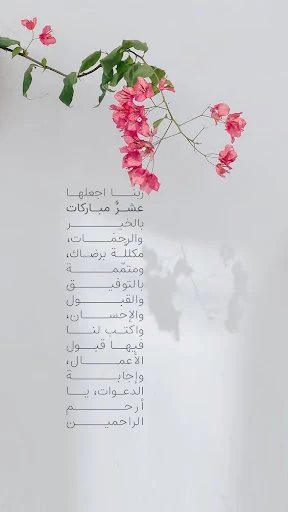 ربنا اجعلها
عشرٌ مباركات
بالخير
والرحمات،
مكللّة برضاك،
ومتمّمة
بالتوفيق
والقبول
والإحسان،
واكتب لنا
فيها قبول
الأعمال،
وإجابة
الدعوات، يا
أرحم
الراحمين